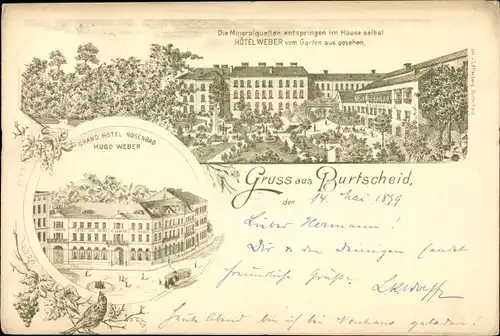 Die Mineralquellen entspringen im Hause selbst
HÔTEL WEBER vom Garten aus gesehen,
GRAND HOTEL ROSENBAD
HUGO WEBER
Gruss aus Burtscheid,
den 14. Mai 1899
Lieber Hermann!
Dir & den Deinigen sendet
freundliche Grüße.
Heute Abend bin ich bei Neuhaus geladen!